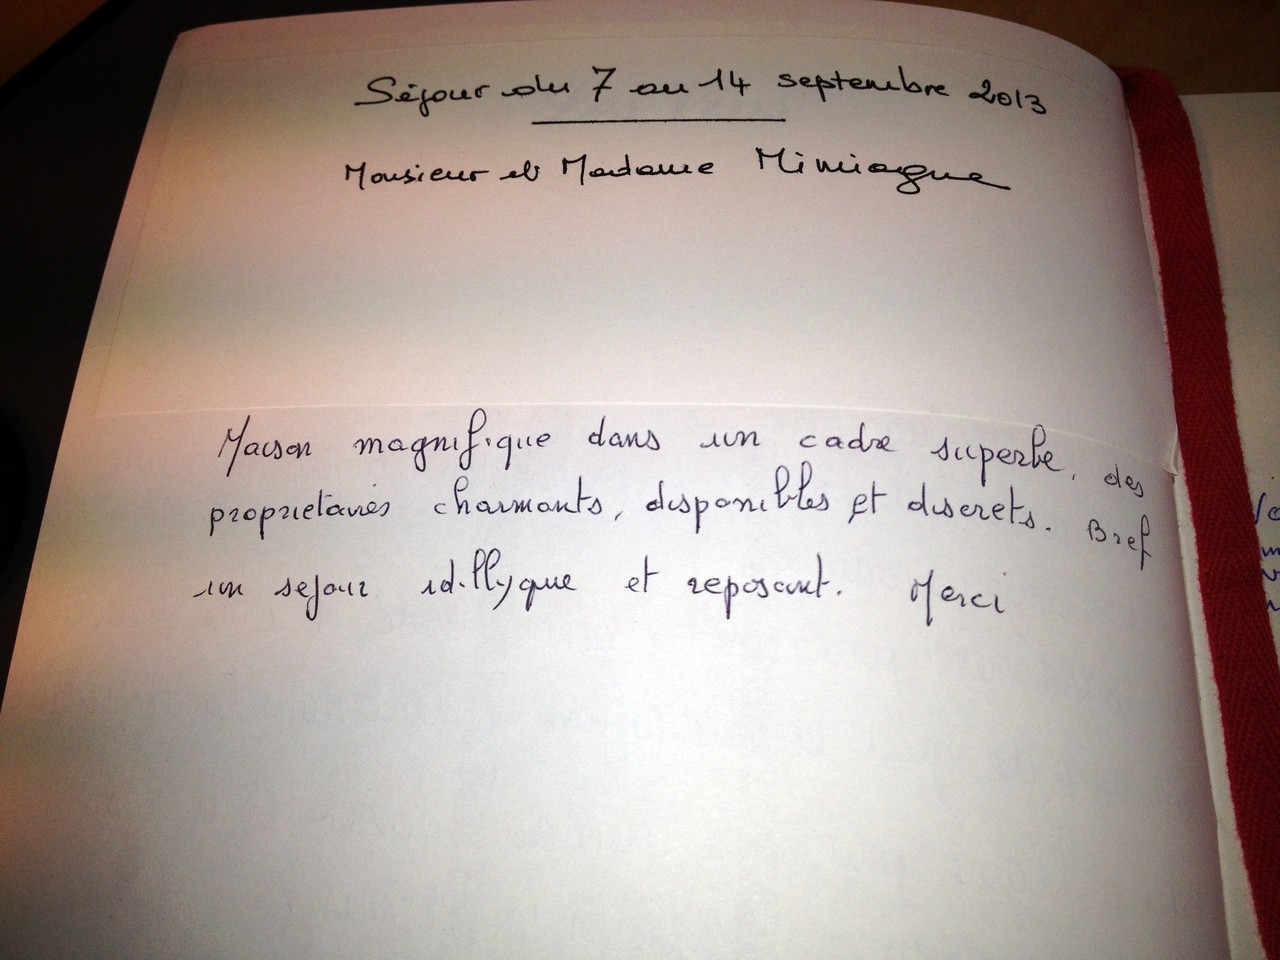 Séjour du 7 au 14 septembre 2013
Monsieur et Madame Mimiague
Maison magnifique dans un cadre superbe, des
proprietaires charmants, disponibles et discrets. Bref
un sejour idillyque et reposant. Merci